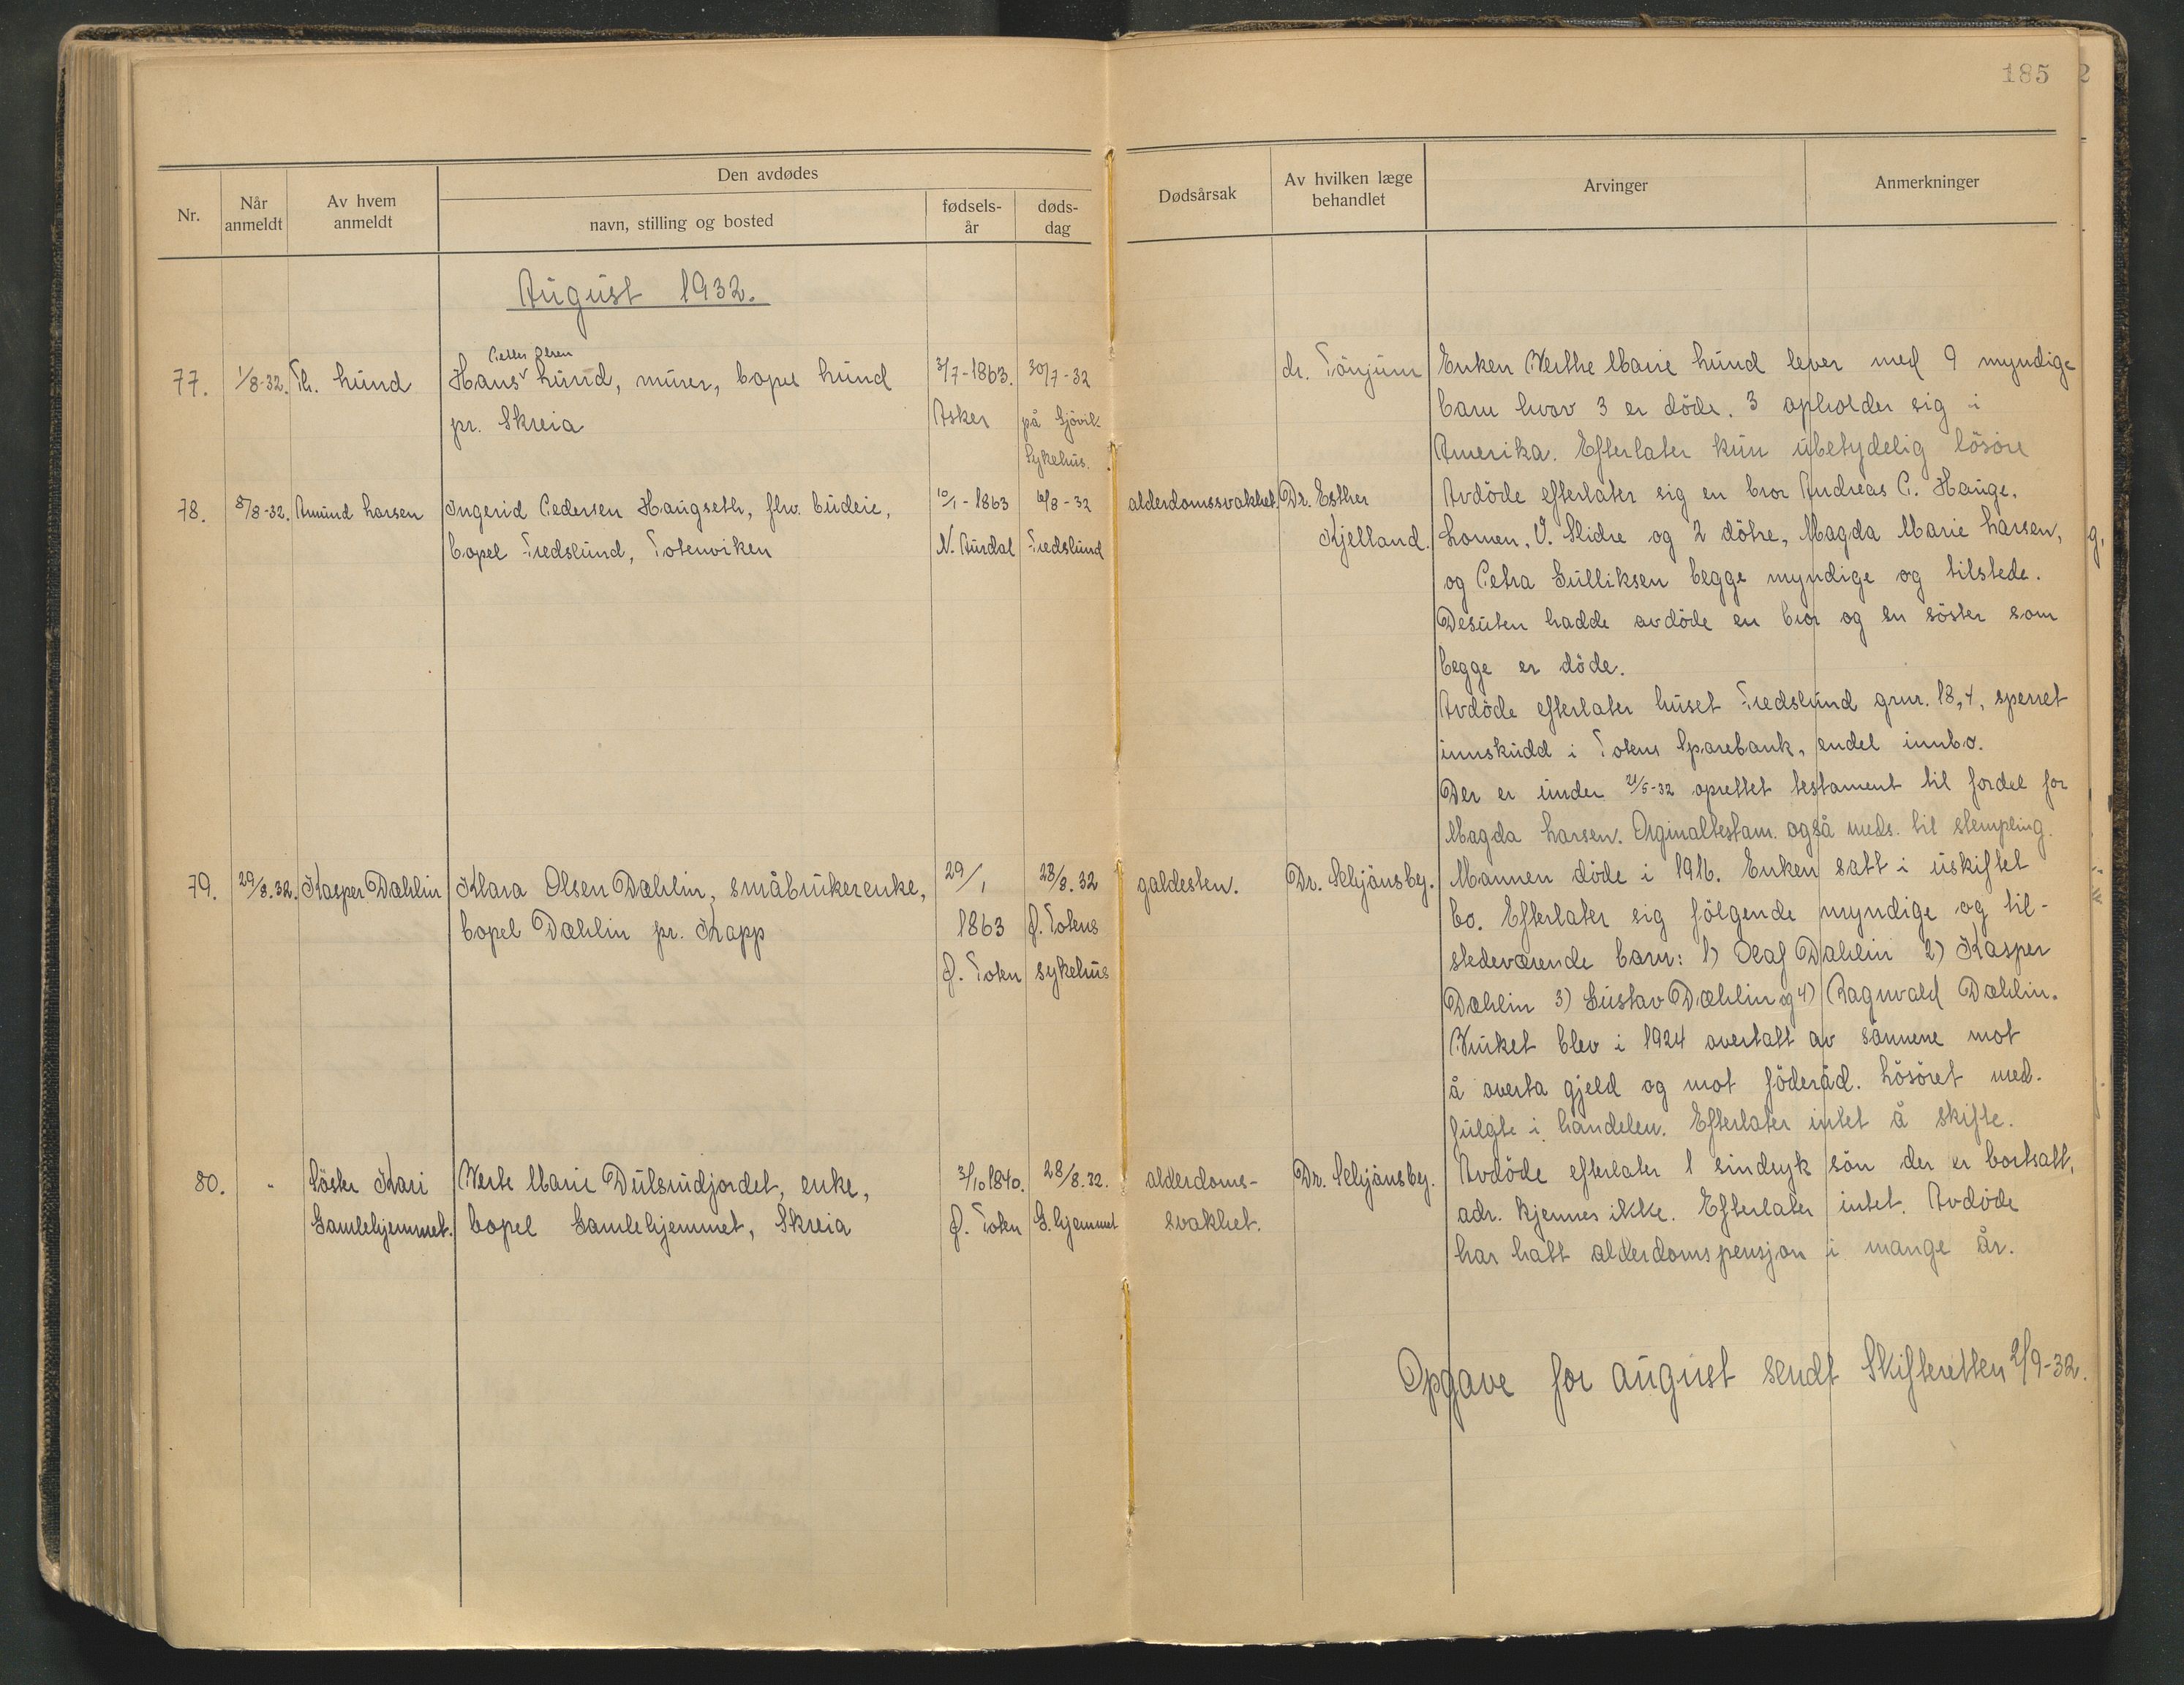 185 2
Den avdødes
Nr.
Når anmeldt
Av hvem anmeldt
navn, stilling og bosted
fødsels-år
døds-dag
Dødsårsak
Av hvilken læge behandlet
Arvinger
Anmerkninger
August 1932.
77. 1/8-32. Th. Lund
Hans Petter Olsen Lund, murer, bopel Lund
pr. Skreia
3/7-1863.
Asker
30/7-32
på Gjövik
Sykehus.
dr. Tönjum
Enken Berthe Marie Lund lever med 9 myndige
barn hvov 3 er döde. 3 opholder sig i
Amerika. Efterlater kun ubetydelig lösöre
78. 8/8-32. Amund Larsen
Ingerid Pedersen Haugseth, flw. budeie,
bopel Fredslund, Totenviken
10/1-1863
N. Aurdal
6/8-32
Fredslund
alderdomssvakhet.
Dr. Esther
Kjelland.
Avdöde efterlater sig en bror Andreas P. Hauge,
Lomen, V. Slidre og 2 dötre, Magda Marie Larsen,
og Petra Gulliksen begge myndige og tilstede.
Desuten hadde avdöde en bror og en söster som
begge er döde.
Avdöde efterlater huset Fredslund grnr. 18,4, sperret
innskudd i Totens Sparebank, endel innbo.
Der er under 21/5-32 oprettet testament til fordel for
Magda Larsen. Orginaltestam. også meds. til stempling.
79. 29/8.32. Kasper Dæhlin
Klara Olsen Dæhlin, småbrukerenke,
bopel Dæhlin pr. Kapp
29/1
1863
Ø. Toten
28/8.32
Ø. Totens
sykehus
galdesten.
Dr. Schjånsby.
Mannen döde i 1916. Enken satt i uskiftet
bo. Efterlater sig fölgende myndige og til-
stedeværende barn: 1) Olaf Dæhlin 2) Kasper
Dæhlin 3) Gustav Dæhlin og 4) Ragnvald Dæhlin.
Bruket blev i 1924 overtatt av sönnene mot
å overta gjeld og mot föderåd. Lösöret med-
fulgte i handelen. Efterlater intet å skifte.
80. " Söster Kari
Gamlehjemmet.
Berte Marie Dulsrudjordet, enke,
bopel Gamlehjemmet, Skreia
3/10 1840.
Ø. Toten
28/8.32.
G.hjemmet
alderdoms-
svakhet.
Dr. Schjånsby.
Avdöde efterlater 1 sindsyk sön der er bortsatt,
adr. kjennes ikke. Efterlater intet. Avdöde
har hatt alderdomspensjon i mange år.
Opgave for august sendt Skifteretten 2/9-32.